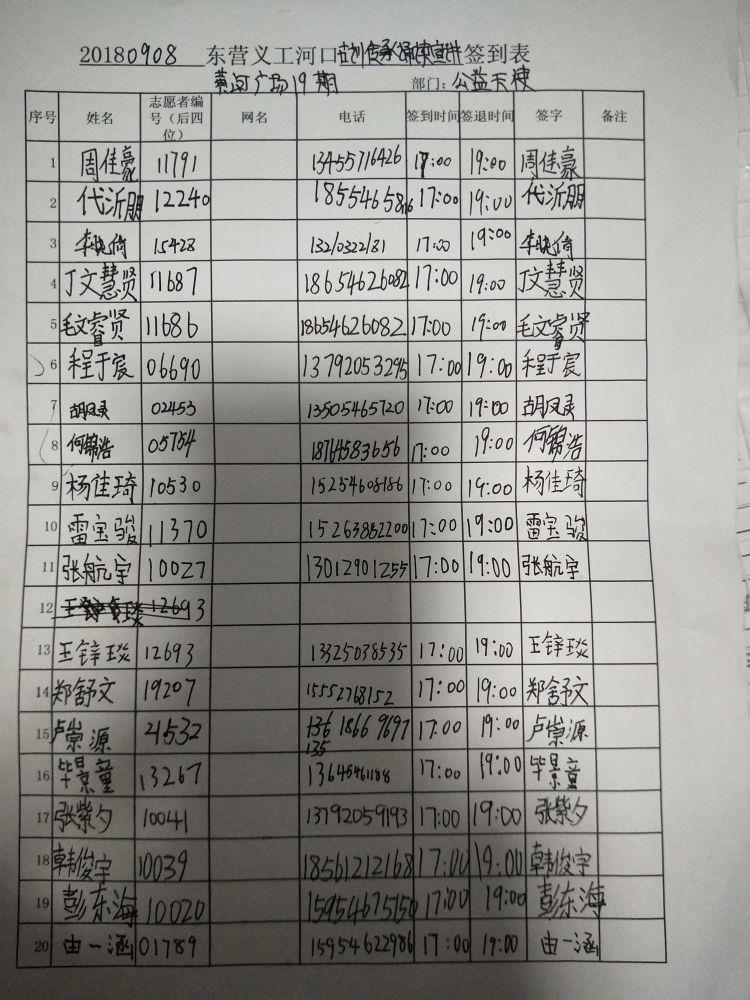 20180908 东营义工河口古刘传承诵读宣讲签到表
黄河广场19期 部门：公益天使
序号 姓名 志愿者编号（后四位） 网名 电话 签到时间 签退时间 签字 备注
1 周佳豪 11791 13455716426 17:00 19:00 周佳豪
2 代沂朋 12240 18554658 17:00 19:00 代沂朋
3 李晓倚 15428 13210322181 17:00 19:00 李晓倚
4 丁文慧贤 11687 18654626082 17:00 19:00 丁文慧贤
5 毛文睿贤 11686 18654626082 17:00 19:00 毛文睿贤
6 程于宸 06690 13792053295 17:00 19:00 程于宸
7 胡凤灵 02453 13505465720 17:00 19:00 胡凤灵
8 何锦浩 05754 18764583656 17:00 19:00 何锦浩
9 杨佳琦 10530 15254608186 17:00 19:00 杨佳琦
10 雷宝骏 11370 15263882200 17:00 19:00 雷宝骏
11 张航宇 10027 13012901255 17:00 19:00 张航宇
12 王 琰 12693
13 王锌琰 12693 13325038535 17:00 19:00 王锌琰
14 郑舒文 19207 15552768152 17:00 19:00 郑舒文
15 卢崇源 21532 136 1866 9697 17:00 19:00 卢崇源
135
16 毕景童 13267 13645461188 17:00 19:00 毕景童
17 张紫夕 10041 13792059193 17:00 19:00 张紫夕
18 韩俊宇 10039 18561212168 17:00 19:00 韩俊宇
19 彭东海 10020 15954675150 17:00 19:00 彭东海
20 由一涵 01789 15954622986 17:00 19:00 由一涵